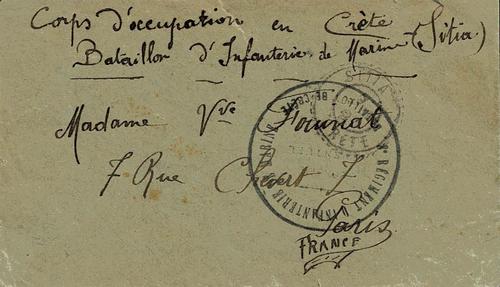 Corps d'occupation en Crète
Bataillon d'Infanterie de Marine (Sitia)
SITIA
CRETE
RÉGIMENT D'INFANTERIE
MARINE
Madame Vve
7 Rue Chevert 7
Paris
FRANCE